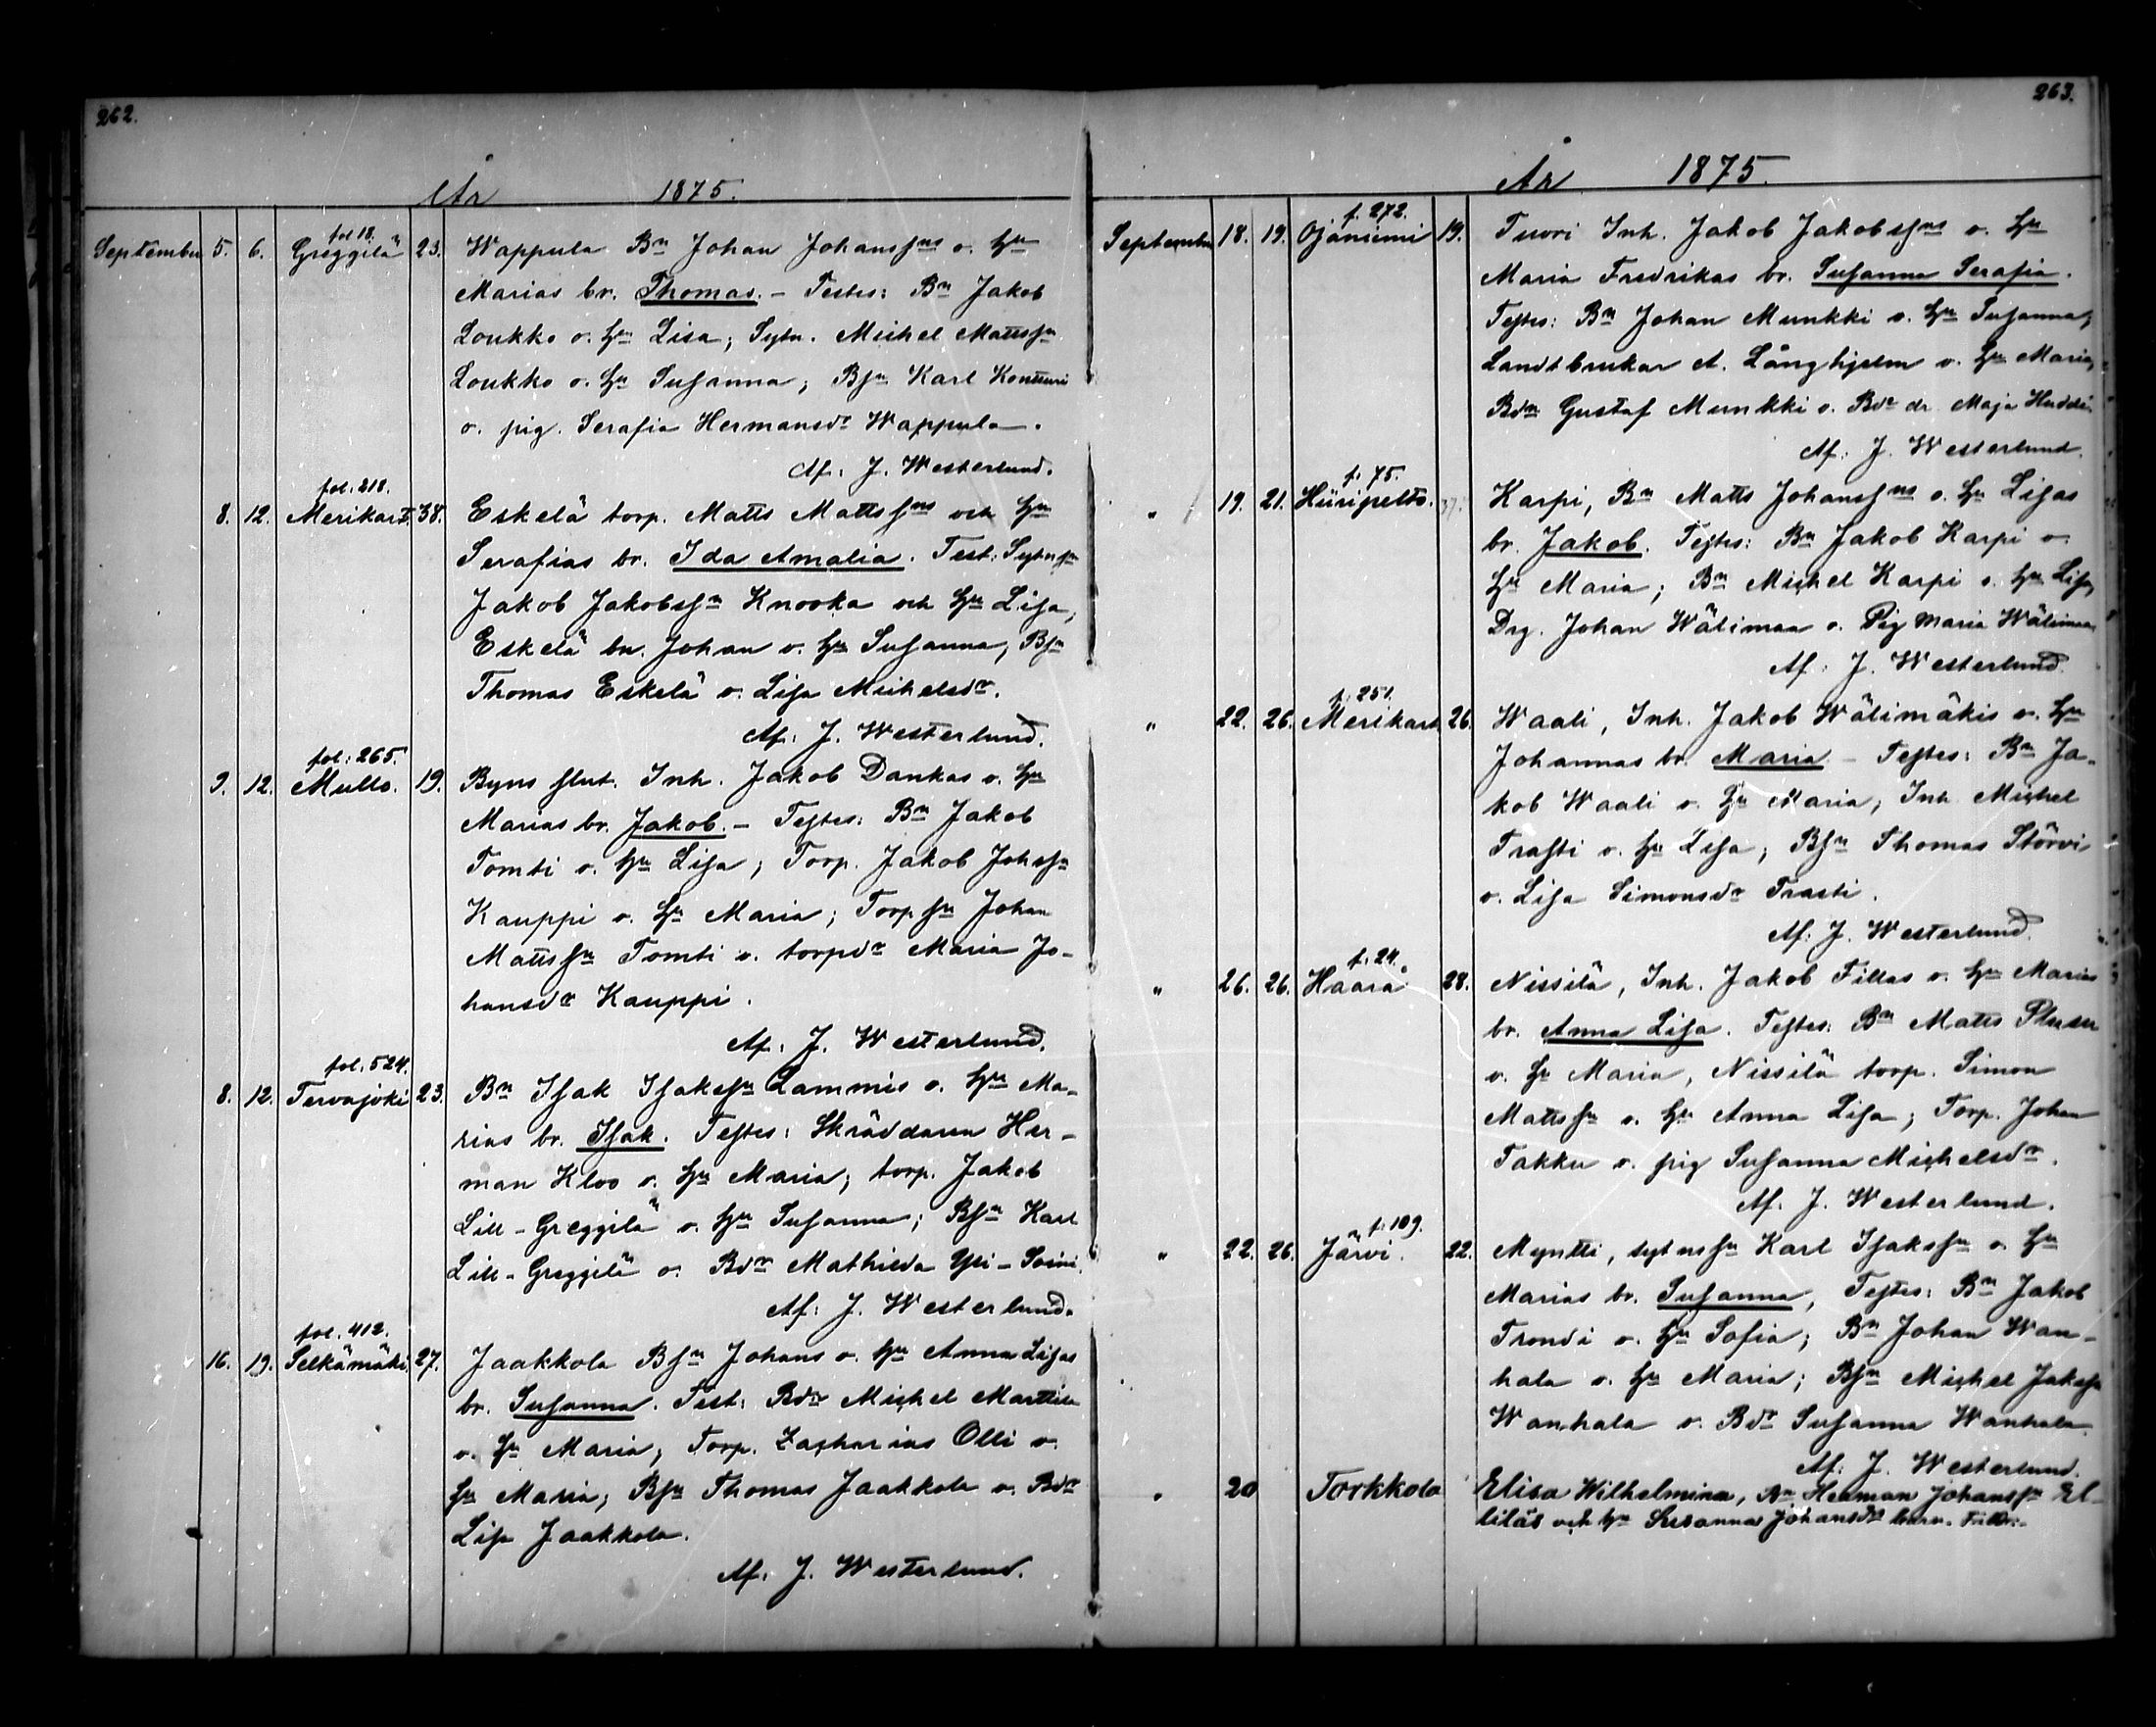 262.
År 1875.
fol 18.
September 5. 6. Greggilä 23. Wappula Bn Johan Johanssns o. Hu
Marias br. Thomas. – Testes: Bn Jakob
Loukko o. Hu Lisa; Sytn. Michel Mattssn
Loukko o. Hu Susanna; Bsn Karl Kontturi
o. pig. Serafia Hermansdr Wappula.
Af: J. Westerlund.
fol. 218.
8. 12. Merikart. 38. Eskelä torp. Matts Mattssns och Hu
Serafias br. Ida Amalia. Test: Sytnsn
Jakob Jakobssn Knooka och Hu Lisa,
Eskelä bn. Johan o. Hu Susanna, Bsn
Thomas Eskelä o. Lisa Michelsdr.
Af: J. Westerlund.
fol: 265.
9. 12. Mullo. 19. Byns slut. Inh. Jakob Dankas o. Hu
Marias br. Jakob. – Testes: Bn Jakob
Tomti o. Hu Lisa; Torp. Jakob Johssn
Kauppi o. Hu Maria; Torp sn Johan
Mattssn Tomti o. torpdr Maria Jo-
hansdr Kauppi.
Af: J. Westerlund.
fol. 524.
8. 12. Tervajoki 23. Bn Isak Isakssn Lammis o. Hu Ma-
rias br. Isak. Testes: Skräddaren Her-
man Kloo o. Hu Maria; torp. Jakob
Lill-Greggilä o. Hu Susanna; Bsn Karl
Lill-Greggilä o. Bdr Mathilda Yli-Soini.
Af: J. Westerlund.
fol. 412.
16. 19. Selkämäki 27. Jaakkola Bsn Johans o. Hu Anna Lisas
br. Susanna. Test: Bdr Michel Marttila
o. Hu Maria; Torp. Zacharias Olli o.
Hu Maria; Bsn Thomas Jaakkola o. Bdr
Lisa Jaakkola.
Af: J. Westerlund.
263.
År 1875.
f. 272.
September 18. 19. Ojaniemi 19. Tuori Inh. Jakob Jakobssns o. Hu
Maria Fredrikas br. Susanna Serafia.
Testes: Bn Johan Munkki o. Hu Susanna;
Landtbrukar A. Långhjelm o. Hu Maria;
Gustaf Munkki o. Bdr dr Maja
Af: J. Westerlund.
f. 75.
" 19. 21. Hiiripelto. 37. Karpi, Bn Matts Johanssns o. Hu Lisas
br. Jakob. Testes: Bn Jakob Karpi o.
Hu Maria; Bn Michel Karpi o. Hu Lisa,
Drg. Johan Wälimaa o. Pig Maria Wälimaa
Af: J. Westerlund.
f. 251.
" 22. 26. Merikart 26. Waali, Inh. Jakob Wälimäkis o. Hu
Johannas br. Maria – Testes: Bn Ja-
kob Waali o. Hu Maria, Inh Michel
Trasti o. Hu Lisa; Bsn Thomas Störvi
o. Lisa Simonsdr Trasti.
Af: J. Westerlund.
f. 24.
" 26. 26. Haarå 28. Nissilä, Inh. Jakob Fillas o. Hu Marias
br. Anna Lisa. Testes: Bn Matts
o. Hu Maria, Nissilä torp. Simon
Mattssn o. Hu Anna Lisa; Torp. Johan
Takku o. pig Susanna Michelsdr.
Af: J. Westerlund.
f. 109.
" 22. 26. Järvi. 22. Myntti, sytnssn Karl Isakssn o. Hu
Marias br. Susanna, Testes: Bn Jakob
Trondi o. Hu Sofia; Bn Johan Wan-
hala o. Hu Maria; Bsn Michel Jakssn
Wanhala o. Bdr Susanna Wanhala
Af: J. Westerlund.
" 20 Torkkola Elisa Wilhelmina, Bn Herman Johanssn El-
liläs och Hu Susanna Johansdr barn.